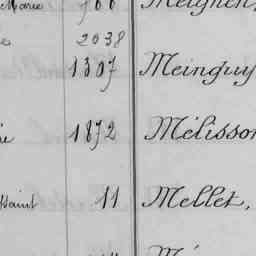 Marie 766 Meignen,
2038
1307 Meinguy
1872 Mélisson
11 Mellet,